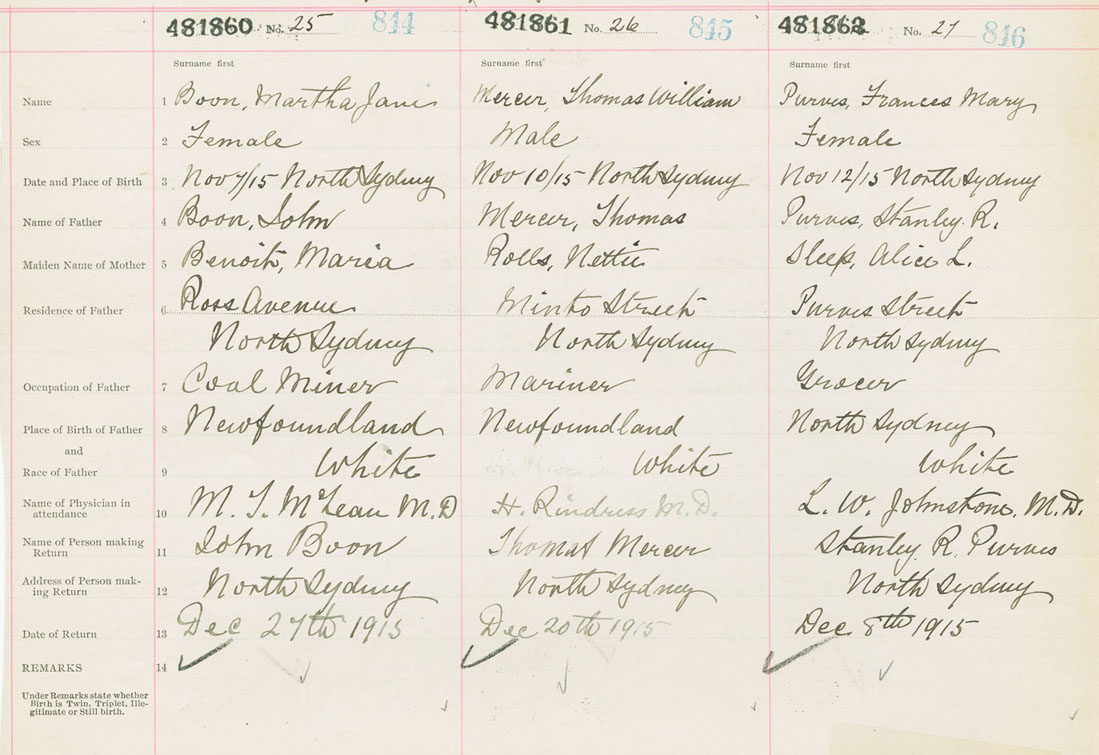 481860 No. 25 844 481861 No. 26 845 481862 No. 27 846
Surname first Surname first Surname first
Name 1 Boon, Martha Jane Mercer, Thomas William Purves, Frances Mary
Sex 2 Female Male Female
Date and Place of Birth 3 Nov 7/15 North Sydney Nov 10/15 North Sydney Nov 12/15 North Sydney
Name of Father 4 Boon, John Mercer, Thomas Purves, Stanley R.
Maiden Name of Mother 5 Benoit, Maria Rolls, Nettie Sleep, Alice L.
Residence of Father 6 Ross Avenue Minto Street Purves Street
North Sydney North Sydney North Sydney
Occupation of Father 7 Coal Miner Mariner Grocer
Place of Birth of Father 8 Newfoundland Newfoundland North Sydney
and
Race of Father 9 White White White
Name of Physician in
attendance 10 M. T. McLean M.D H. Rindress M.D. L. W. Johnstone, M.D.
Name of Person making
Return 11 John Boon Thomas Mercer Stanley R. Purves
Address of Person mak-
ing Return 12 North Sydney North Sydney North Sydney
Date of Return 13 Dec 27th 1915 Dec 20th 1915 Dec 8th 1915
REMARKS 14
Under Remarks state whether
Birth is Twin, Triplet, Ille-
gitimate or Still birth.